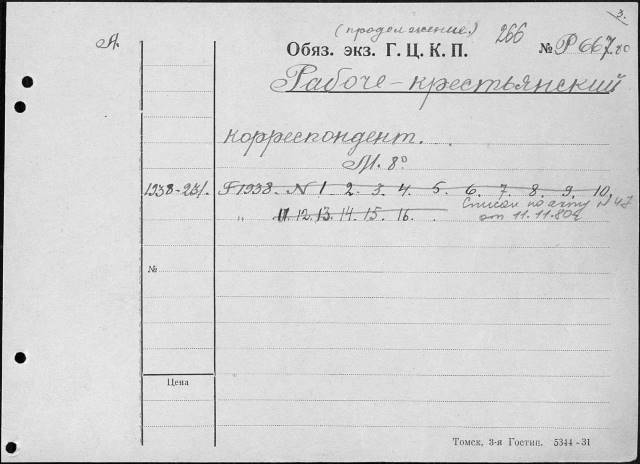 3.
(продолжение)
А.
Обяз. экз. Г. Ц. К. П.
266
№ Р667.20
Рабоче-крестьянский
корреспондент.
М. 8°
1938-25/.
1938. N 1 2. 3. 4. 5. 6. 7. 8. 9. 10.
" 11. 12. 13. 14. 15. 16.
Списан по акту N 47
от 11.11.80г
№
Цена
Томск, 3-я Гостип. 5344-31